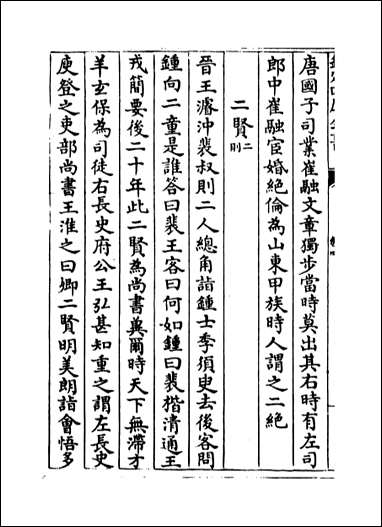 唐國子司業崔融文章獨步當時莫出其右時有左司
郎中崔融宦婚絶倫為山東甲族時人謂之二絶
二賢二則
晉王濬沖裴叔則二人總角詣鍾士季須臾去後客問
鍾向二童是誰答曰裴王客曰何如鍾曰裴楷清通王
戎簡要後二十年此二賢為尚書冀爾時天下無滯才
羊玄保為司徒右長史府公王弘甚知重之謂左長史
庾登之吏部尚書王淮之曰卿二賢明美朗詣會悟多